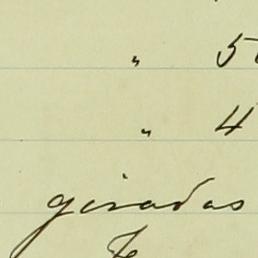 " 5
" 4
giradas